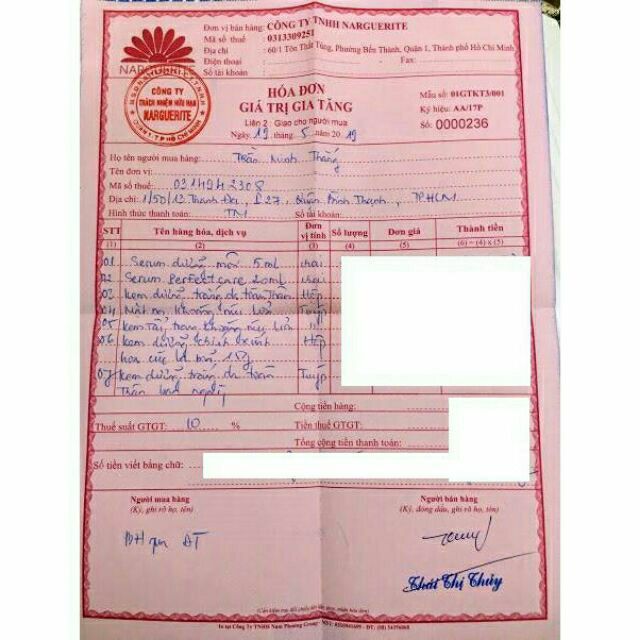 Đơn vị bán hàng: CÔNG TY TNHH NARGUERITE
Mã số thuế : 0313309251
Địa chỉ : 60/1 Tôn Thất Tùng, Phường Bến Thành, Quận 1, Thành phố Hồ Chí Minh
Điện thoại : - Fax:
Số tài khoản:
NARGUERITE
CÔNG TY
TRÁCH NHIỆM HỮU HẠN
NARGUERITE
HÓA ĐƠN
GIÁ TRỊ GIA TĂNG
Liên 2 - Giao cho người mua
Ngày 19 tháng 5 năm 2019
Mẫu số: 01GTKT3/001
Ký hiệu: AA/17P
Số: 0000236
Họ tên người mua hàng: Trần Minh Thắng
Tên đơn vị:
Mã số thuế: 0314942308
Địa chỉ: 1/50/12 Thanh Đa, P.27, Quận Bình Thạnh, TPHCM
Hình thức thanh toán: TM Số tài khoản:
STT Tên hàng hóa, dịch vụ Đơn vị tính Số lượng Đơn giá Thành tiền
(1) (2) (3) (4) (5) (6) = (4) x (5)
01 Serum dưỡng môi 5ml chai
02 Serum Perfect care 20ml chai
03 Kem dưỡng trắng da toàn Thân Hộp
04 Mặt nạ Khoáng núi lửa Tuýp
05 Kem Tẩy trang Khoáng núi lửa 11
06 Kem dưỡng chiết xuất Hộp
hoa cúc 15g
07 Kem dưỡng trắng da toàn Tuýp
Thân
Cộng tiền hàng:
Thuế suất GTGT: 10 % Tiền thuế GTGT:
Tổng cộng tiền thanh toán:
Số tiền viết bằng chữ:
Người mua hàng
(Ký, ghi rõ họ, tên)
Người bán hàng
(Ký, đóng dấu, ghi rõ họ, tên)
BH qua ĐT
Thái Thị Thủy
(Cần kiểm tra đối chiếu khi lập, giao, nhận hóa đơn)
In tại Công Ty TNHH Nam Phương Group